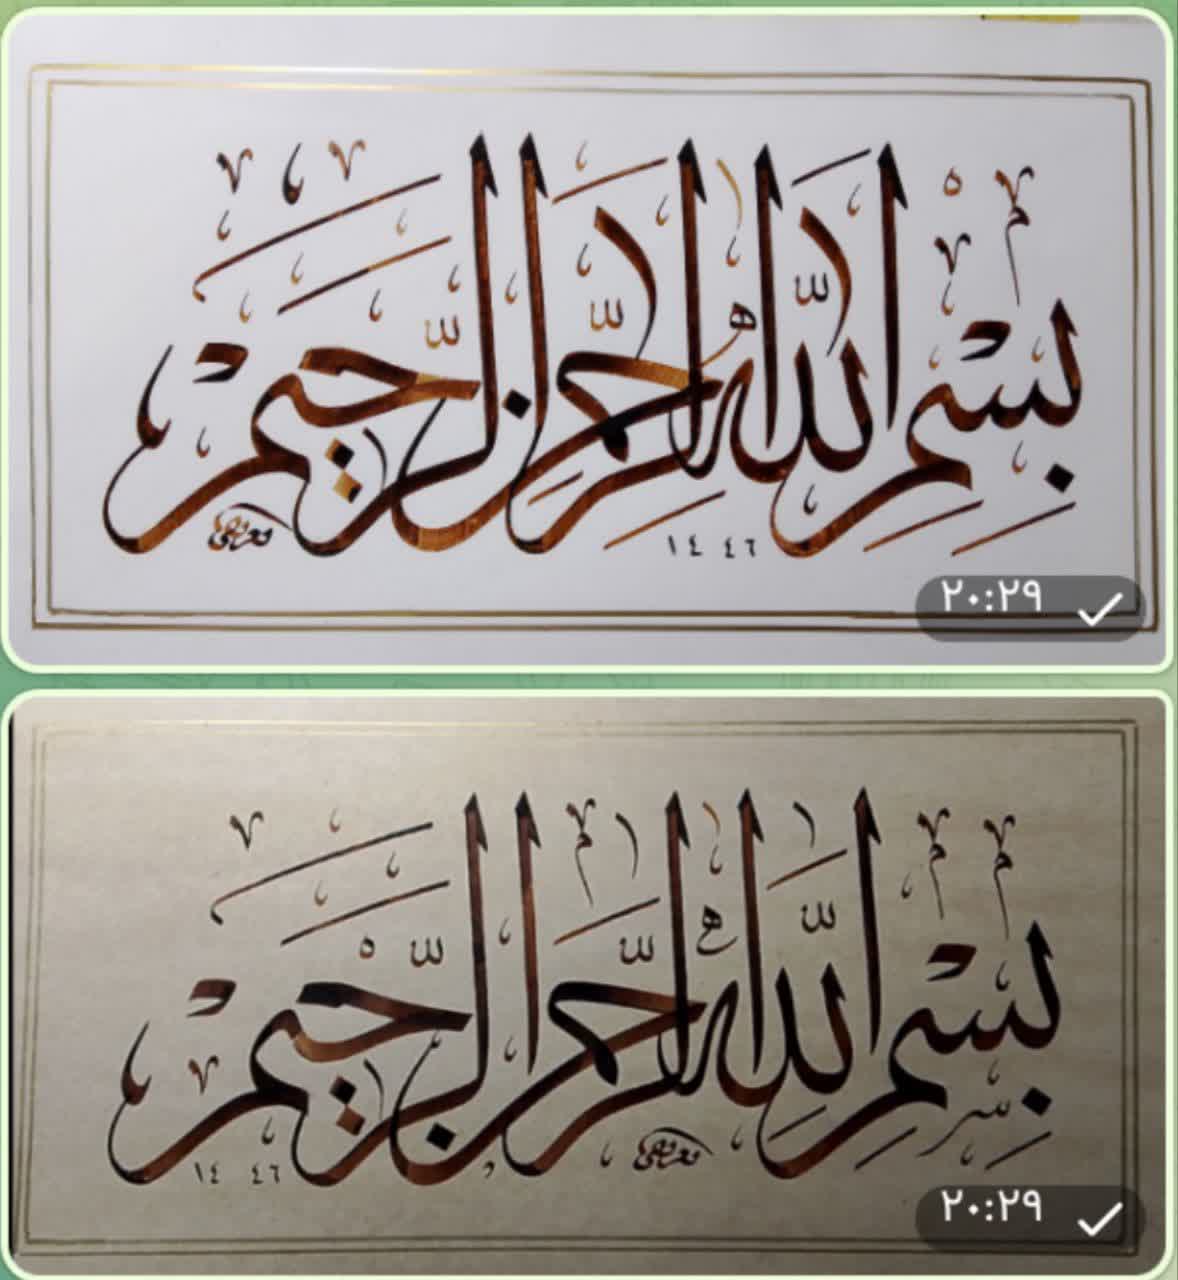 بِسْمِ اللَّهِ الرَّحْمَنِ الرَّحِيمِ
١٤٤٦
٢٠:٢٩
بِسْمِ اللَّهِ الرَّحْمَنِ الرَّحِيمِ
١٤٤٦
٢٠:٢٩